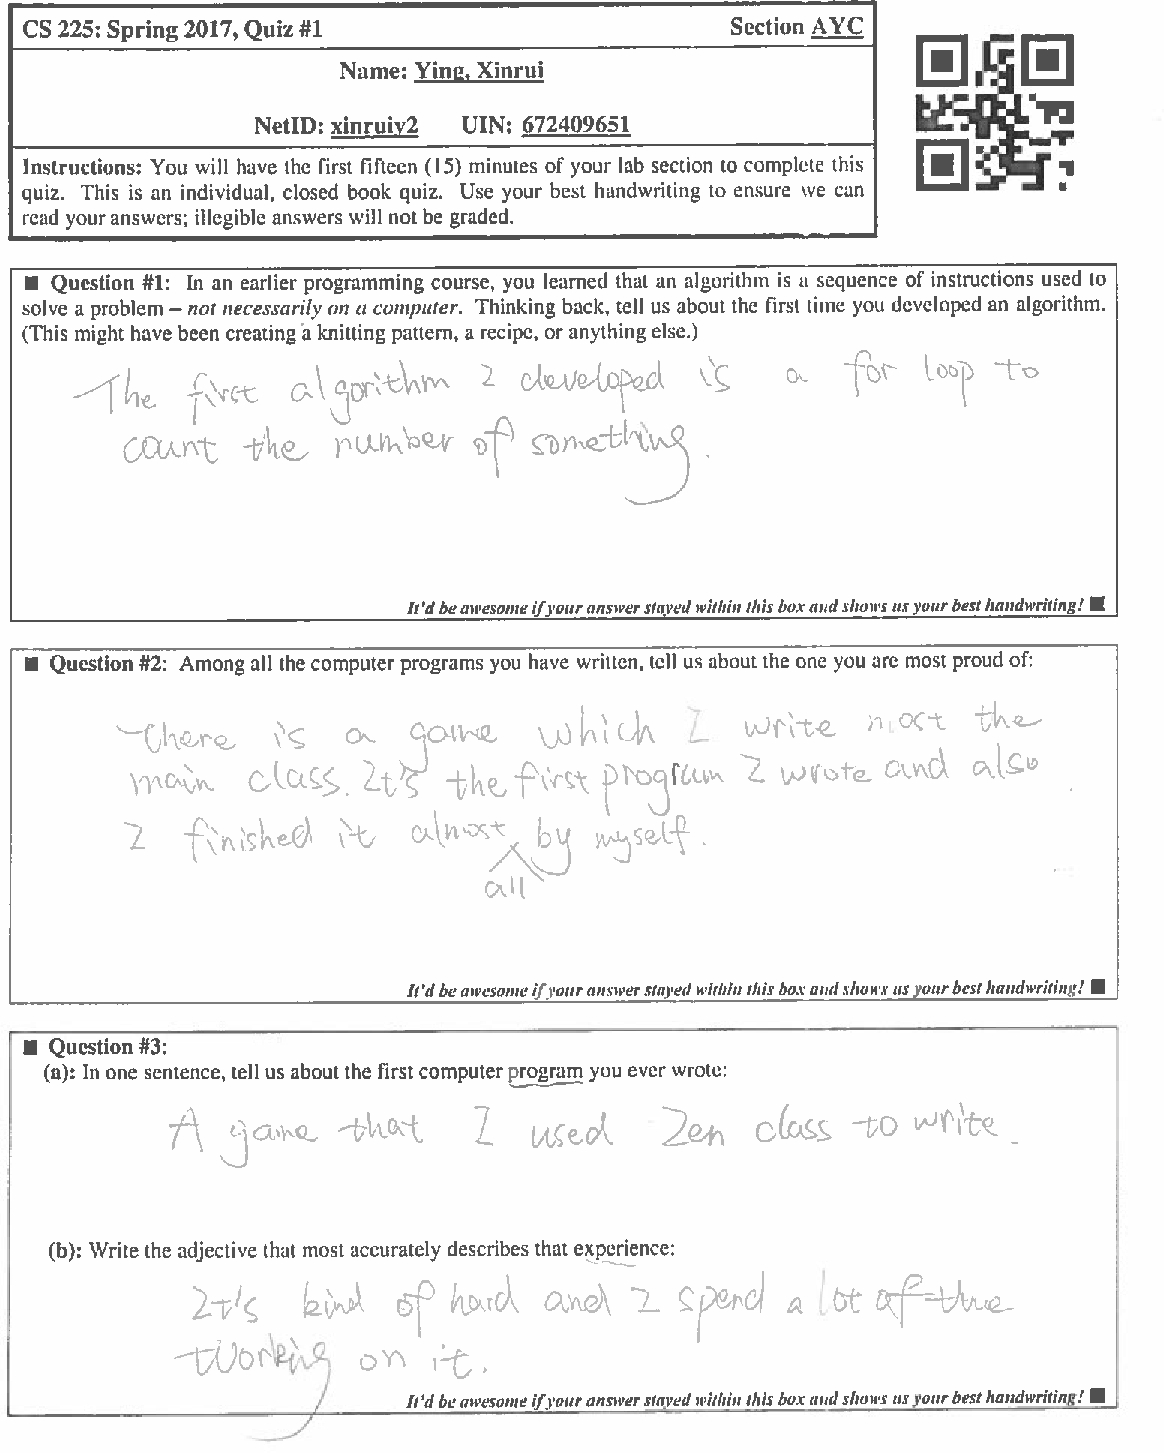 CS 225: Spring 2017, Quiz #1 Section AYC
Name: Ying, Xinrui
NetID: xinruiy2 UIN: 672409651
Instructions: You will have the first fifteen (15) minutes of your lab section to complete this
quiz. This is an individual, closed book quiz. Use your best handwriting to ensure we can
read your answers; illegible answers will not be graded.
■ Question #1: In an earlier programming course, you learned that an algorithm is a sequence of instructions used to
solve a problem – not necessarily on a computer. Thinking back, tell us about the first time you developed an algorithm.
(This might have been creating a knitting pattern, a recipe, or anything else.)
The first algorithm I developed is a for loop to
count the number of something.
It'd be awesome if your answer stayed within this box and shows us your best handwriting! ■
■ Question #2: Among all the computer programs you have written, tell us about the one you are most proud of:
There is a game which I write most the
main class. It's the first program I wrote and also
I finished it almost by myself.
all
It'd be awesome if your answer stayed within this box and shows us your best handwriting! ■
■ Question #3:
(a): In one sentence, tell us about the first computer program you ever wrote:
A game that I used Zen class to write.
(b): Write the adjective that most accurately describes that experience:
It's kind of hard and I spend a lot of the
working on it.
It'd be awesome if your answer stayed within this box and shows us your best handwriting! ■